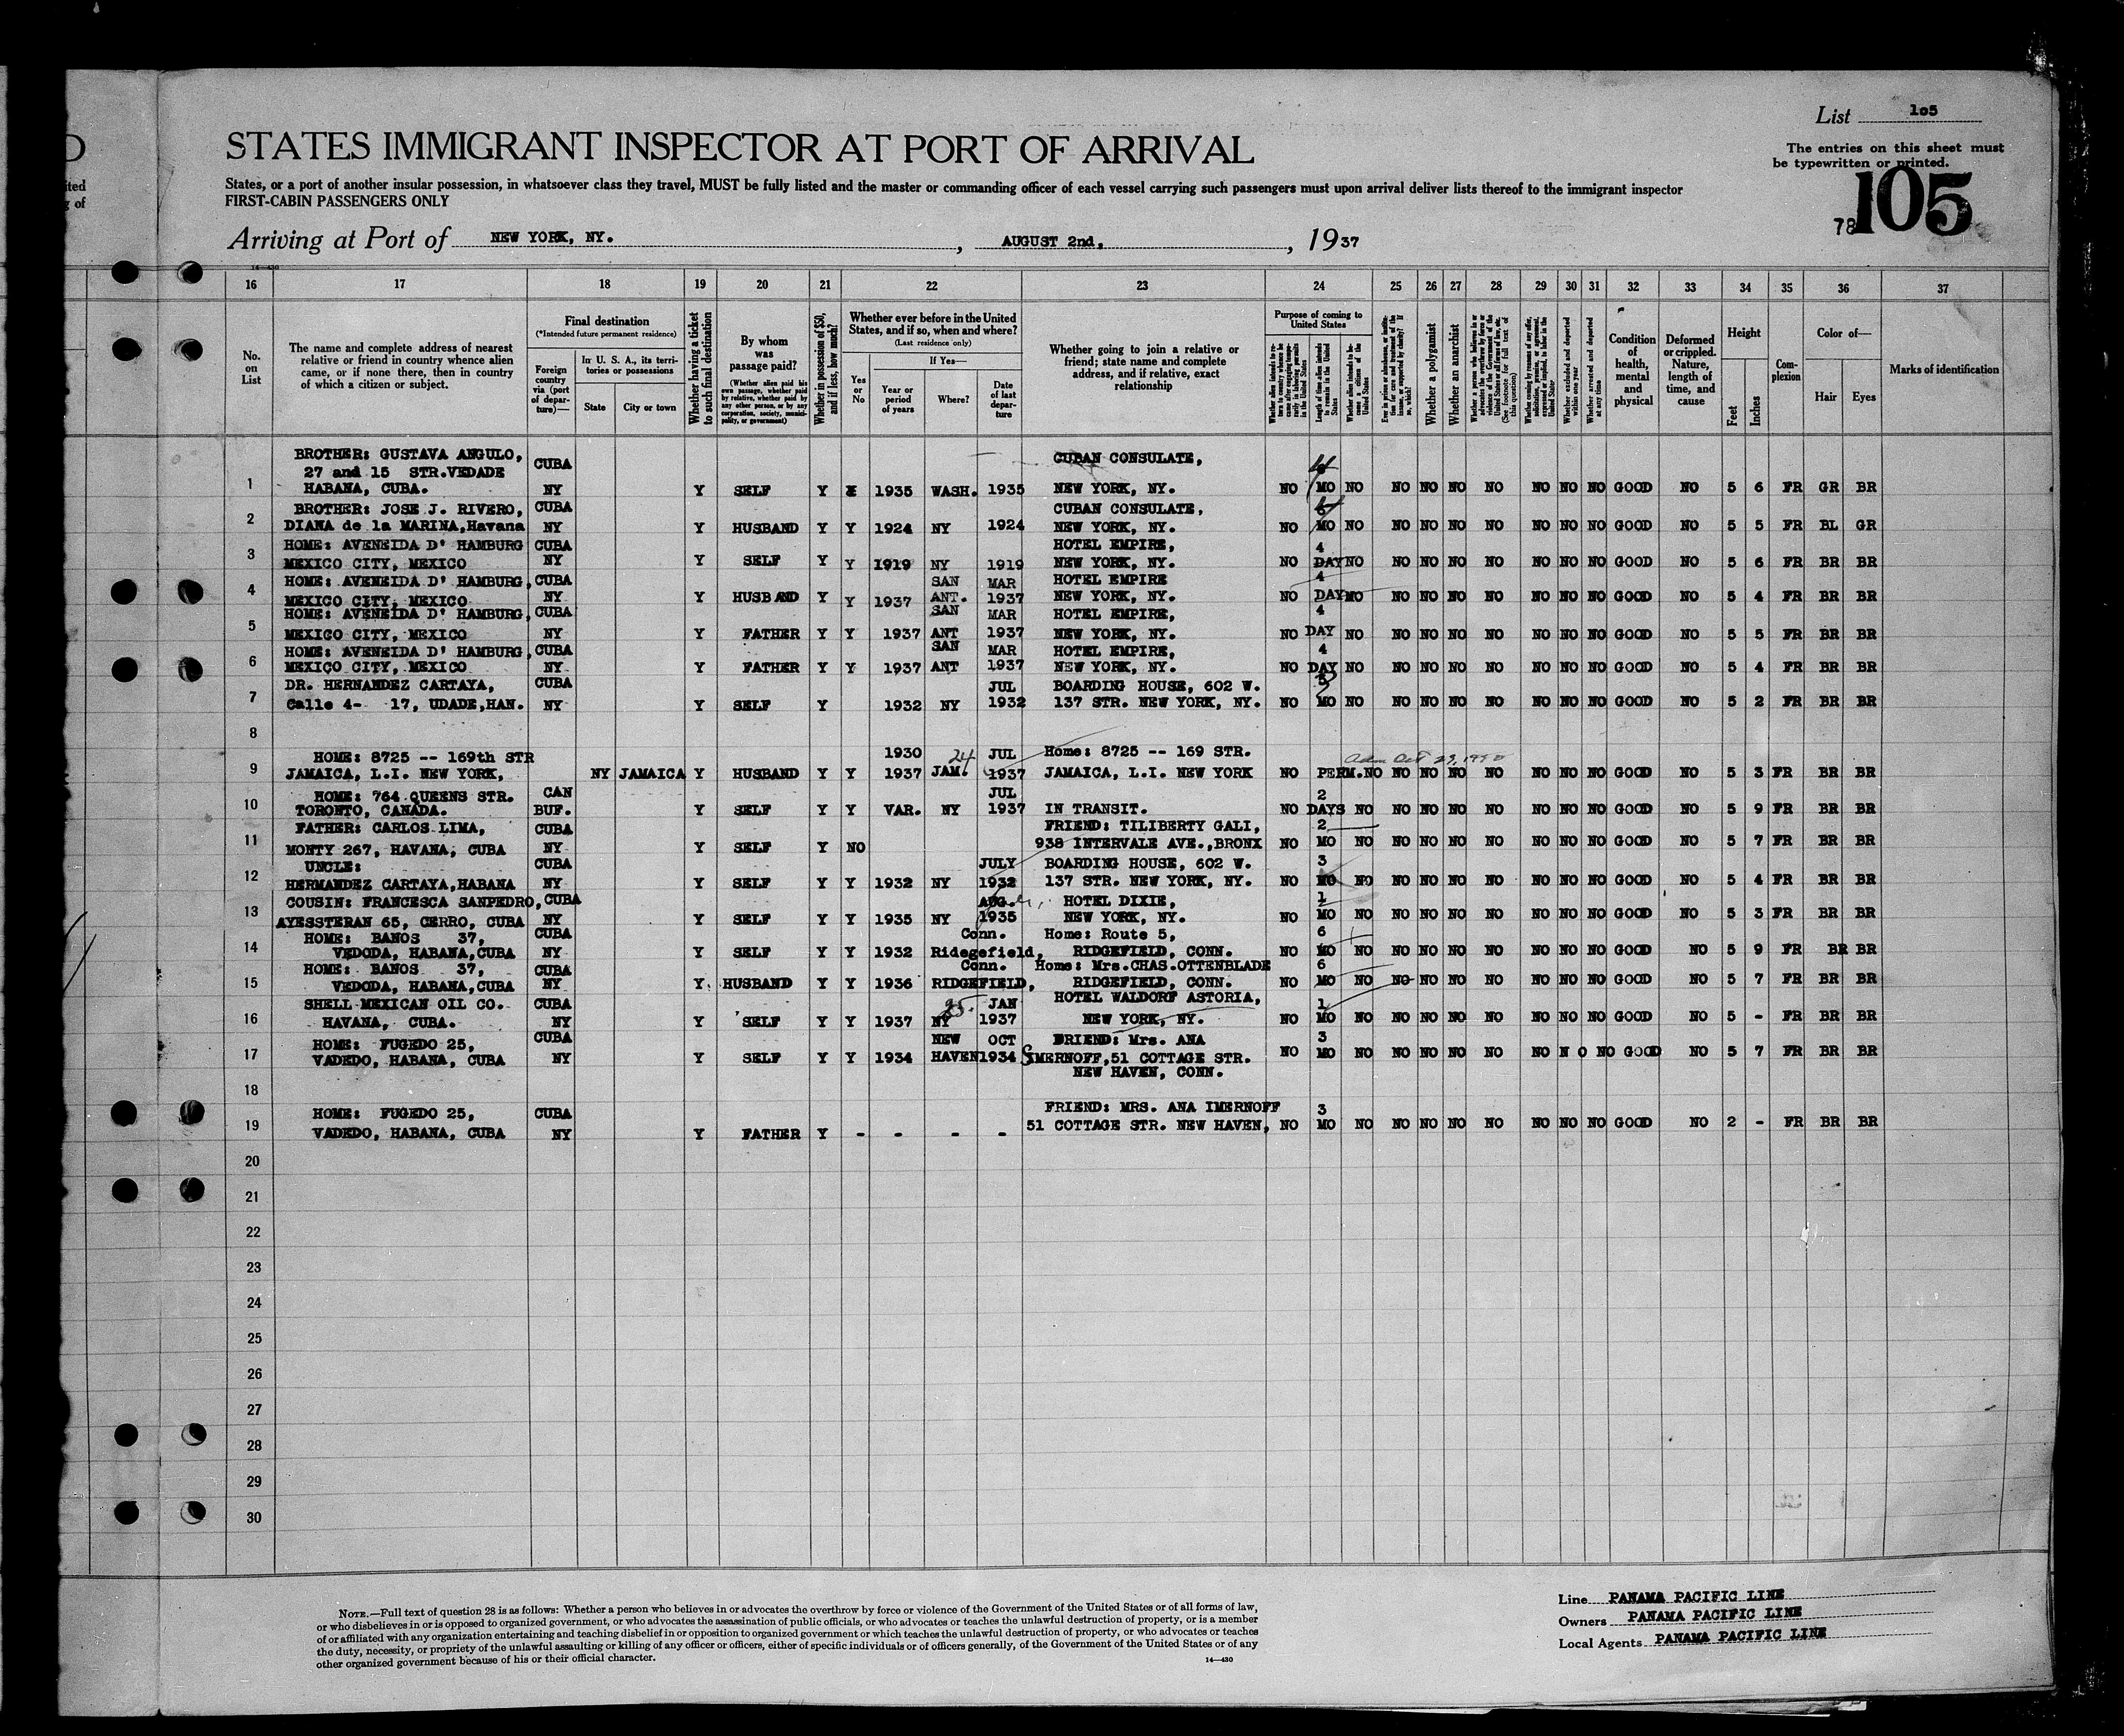 List 105
STATES IMMIGRANT INSPECTOR AT PORT OF ARRIVAL
The entries on this sheet must
be typewritten or printed.
States, or a port of another insular possession, in whatsoever class they travel, MUST be fully listed and the master or commanding officer of each vessel carrying such passengers must upon arrival deliver lists thereof to the immigrant inspector
FIRST-CABIN PASSENGERS ONLY
78 105
Arriving at Port of NEW YORK, NY. , AUGUST 2nd, , 1937
14—430
16 17 18 19 20 21 22 23 24 25 26 27 28 29 30 31 32 33 34 35 36 37
No. on List
The name and complete address of nearest relative or friend in country whence alien came, or if none there, then in country of which a citizen or subject.
Final destination
(*Intended future permanent residence)
Foreign country via (port of departure)—
In U. S. A., its territories or possessions
State
City or town
Whether having a ticket to such final destination
By whom was passage paid?
(Whether alien paid his own passage, whether paid by relative, whether paid by any other person, or by any corporation, society, municipality, or government)
Whether in possession of $50, and if less, how much?
Whether ever before in the United States, and if so, when and where?
(Last residence only)
Yes or No
If Yes—
Year or period of years
Where?
Date of last departure
Whether going to join a relative or friend; state name and complete address, and if relative, exact relationship
Purpose of coming to United States
Length of time alien intends to remain in the United States
Whether alien intends to become a citizen of the United States
Whether a polygamist
Whether an anarchist
Whether excluded and deported within one year
Whether arrested and deported at any time
Condition of health, mental and physical
Deformed or crippled. Nature, length of time, and cause
Height
Feet
Inches
Complexion
Color of—
Hair
Eyes
Marks of identification
BROTHER: GUSTAVA ANGULO, CUBA CUBAN CONSULATE, 4
27 and 15 STR.VEDADE
1 HABANA, CUBA. NY Y SELF Y Y 1935 WASH. 1935 NEW YORK, NY. NO MO NO NO NO NO NO NO NO NO GOOD NO 5 6 FR GR BR
BROTHER: JOSE J. RIVERO, CUBA CUBAN CONSULATE,
2 DIANA de la MARINA,Havana NY Y HUSBAND Y Y 1924 NY 1924 NEW YORK, NY. NO MO NO NO NO NO NO NO NO NO GOOD NO 5 5 FR BL GR
HOME: AVENEIDA D' HAMBURG CUBA HOTEL EMPIRE, 4
3 MEXICO CITY, MEXICO NY Y SELF Y Y 1919 NY 1919 NEW YORK, NY. NO DAY NO NO NO NO NO NO NO NO GOOD NO 5 6 FR BR BR
HOME: AVENEIDA D' HAMBURG, CUBA SAN MAR HOTEL EMPIRE 4
4 MEXICO CITY, MEXICO NY Y HUSBAND Y Y 1937 ANT. 1937 NEW YORK, NY. NO DAY NO NO NO NO NO NO NO NO GOOD NO 5 4 FR BR BR
HOME: AVENEIDA D' HAMBURG, CUBA SAN MAR HOTEL EMPIRE, 4
5 MEXICO CITY, MEXICO NY Y FATHER Y Y 1937 ANT 1937 NEW YORK, NY. NO DAY NO NO NO NO NO NO NO NO GOOD NO 5 5 FR BR BR
HOME: AVENEIDA D' HAMBURG, CUBA SAN MAR HOTEL EMPIRE, 4
6 MEXICO CITY, MEXICO NY Y FATHER Y Y 1937 ANT 1937 NEW YORK, NY. NO DAY NO NO NO NO NO NO NO NO GOOD NO 5 4 FR BR BR
DR. HERNANDEZ CARTAYA, CUBA JUL BOARDING HOUSE, 602 W. 3
7 Calle 4- 17, UDADE,HAN. NY Y SELF Y 1932 NY 1932 137 STR. NEW YORK, NY. NO MO NO NO NO NO NO NO NO NO GOOD NO 5 2 FR BR BR
8
HOME: 8725 -- 169th STR 1930 24 JUL Home: 8725 -- 169 STR.
9 JAMAICA, L.I. NEW YORK, NY JAMAICA Y HUSBAND Y Y 1937 JAM. 1937 JAMAICA, L.I. NEW YORK NO PERM. NO NO NO NO NO NO NO NO GOOD NO 5 3 FR BR BR
HOME: 764 QUEENS STR. CAN JUL 2
10 TORONTO, CANADA. BUF. Y SELF Y Y VAR. NY 1937 IN TRANSIT. NO DAYS NO NO NO NO NO NO NO NO GOOD NO 5 9 FR BR BR
FATHER: CARLOS LIMA, CUBA FRIEND: TILIBERTY GALI, 2
11 MONTY 267, HAVANA, CUBA NY Y SELF Y NO 938 INTERVALE AVE.,BRONX NO MO NO NO NO NO NO NO NO NO GOOD NO 5 7 FR BR BR
UNCLE: CUBA JULY BOARDING HOUSE, 602 W. 3
12 HERMANDEZ CARTAYA,HABANA NY Y SELF Y Y 1932 NY 1932 137 STR. NEW YORK, NY. NO MO NO NO NO NO NO NO NO NO GOOD NO 5 4 FR BR BR
COUSIN: FRANCESCA SANPEDRO, CUBA AUG. HOTEL DIXIE, 1
13 AYESSTERAN 65, CERRO, CUBA NY Y SELF Y Y 1935 NY 1935 NEW YORK, NY. NO MO NO NO NO NO NO NO NO NO GOOD NO 5 3 FR BR BR
HOME: BANOS 37, CUBA Conn. Home: Route 5, 6
14 VEDODA, HABANA,CUBA NY Y SELF Y Y 1932 Ridegefield, RIDGEFIELD, CONN. NO MO NO NO NO NO NO NO NO NO GOOD NO 5 9 FR BR BR
HOME: BANOS 37, CUBA Conn. Home: Mrs.CHAS.OTTENBLADE 6
15 VEDODA, HABANA,CUBA NY Y HUSBAND Y Y 1936 RIDGEFIELD, RIDGEFIELD, CONN. NO MO NO NO NO NO NO NO NO NO GOOD NO 5 7 FR BR BR
SHELL MEXICAN OIL CO. CUBA JAN HOTEL WALDORF ASTORIA, 1
16 HAVANA, CUBA. NY Y SELF Y Y 1937 NY 1937 NEW YORK, NY. NO MO NO NO NO NO NO NO NO NO GOOD NO 5 - FR BR BR
HOME: FUGEDO 25, CUBA NEW OCT FRIEND: Mrs. ANA 3
17 VADEDO, HABANA, CUBA NY Y SELF Y Y 1934 HAVEN 1934 SMERNOFF,51 COTTAGE STR. NO MO NO NO NO NO NO NO N O NO GOOD NO 5 7 FR BR BR
NEW HAVEN, CONN.
18
HOME: FUGEDO 25, CUBA FRIEND: MRS. ANA IMERNOFF 3
19 VADEDO, HABANA, CUBA NY Y FATHER Y - - - - 51 COTTAGE STR. NEW HAVEN, NO MO NO NO NO NO NO NO NO NO GOOD NO 2 - FR BR BR
20
21
22
23
24
25
26
27
28
29
30
NOTE.—Full text of question 28 is as follows: Whether a person who believes in or advocates the overthrow by force or violence of the Government of the United States or of all forms of law,
or who disbelieves in or is opposed to organized government, or who advocates the assassination of public officials, or who advocates or teaches the unlawful destruction of property, or is a member
of or affiliated with any organization entertaining and teaching disbelief in or opposition to organized government or which teaches the unlawful destruction of property, or who advocates or teaches
the duty, necessity, or propriety of the unlawful assaulting or killing of any officer or officers, either of specific individuals or of officers generally, of the Government of the United States or of any
other organized government because of his or their official character.
14—430
Line PANAMA PACIFIC LINE
Owners PANAMA PACIFIC LINE
Local Agents PANAMA PACIFIC LINE